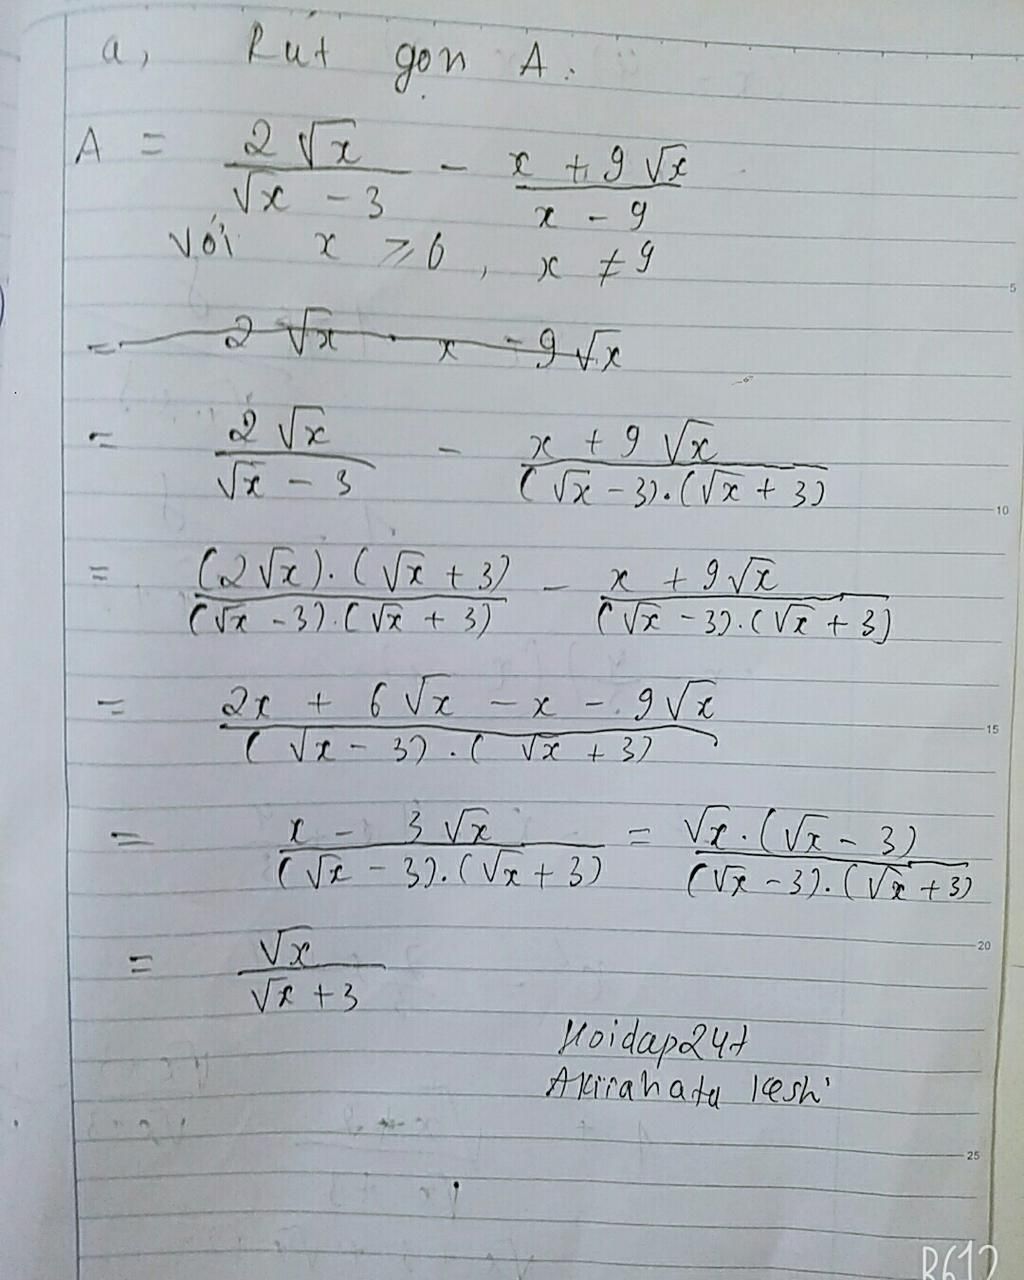 a, Rút gọn A.
A = \frac{2\sqrt{x}}{\sqrt{x} - 3} - \frac{x + 9\sqrt{x}}{x - 9}
Với x ⩾ 0, x ≠ 9
= 2\sqrt{x} x - 9\sqrt{x}
= \frac{2\sqrt{x}}{\sqrt{x} - 3} - \frac{x + 9\sqrt{x}}{(\sqrt{x} - 3).(\sqrt{x} + 3)}
= \frac{(2\sqrt{x}).(\sqrt{x} + 3)}{(\sqrt{x} - 3).(\sqrt{x} + 3)} - \frac{x + 9\sqrt{x}}{(\sqrt{x} - 3).(\sqrt{x} + 3)}
= \frac{2x + 6\sqrt{x} - x - 9\sqrt{x}}{(\sqrt{x} - 3).(\sqrt{x} + 3)}
= \frac{x - 3\sqrt{x}}{(\sqrt{x} - 3).(\sqrt{x} + 3)} = \frac{\sqrt{x}.(\sqrt{x} - 3)}{(\sqrt{x} - 3).(\sqrt{x} + 3)}
= \frac{\sqrt{x}}{\sqrt{x} + 3}
Hoidap247
5
10
15
20
25
B612